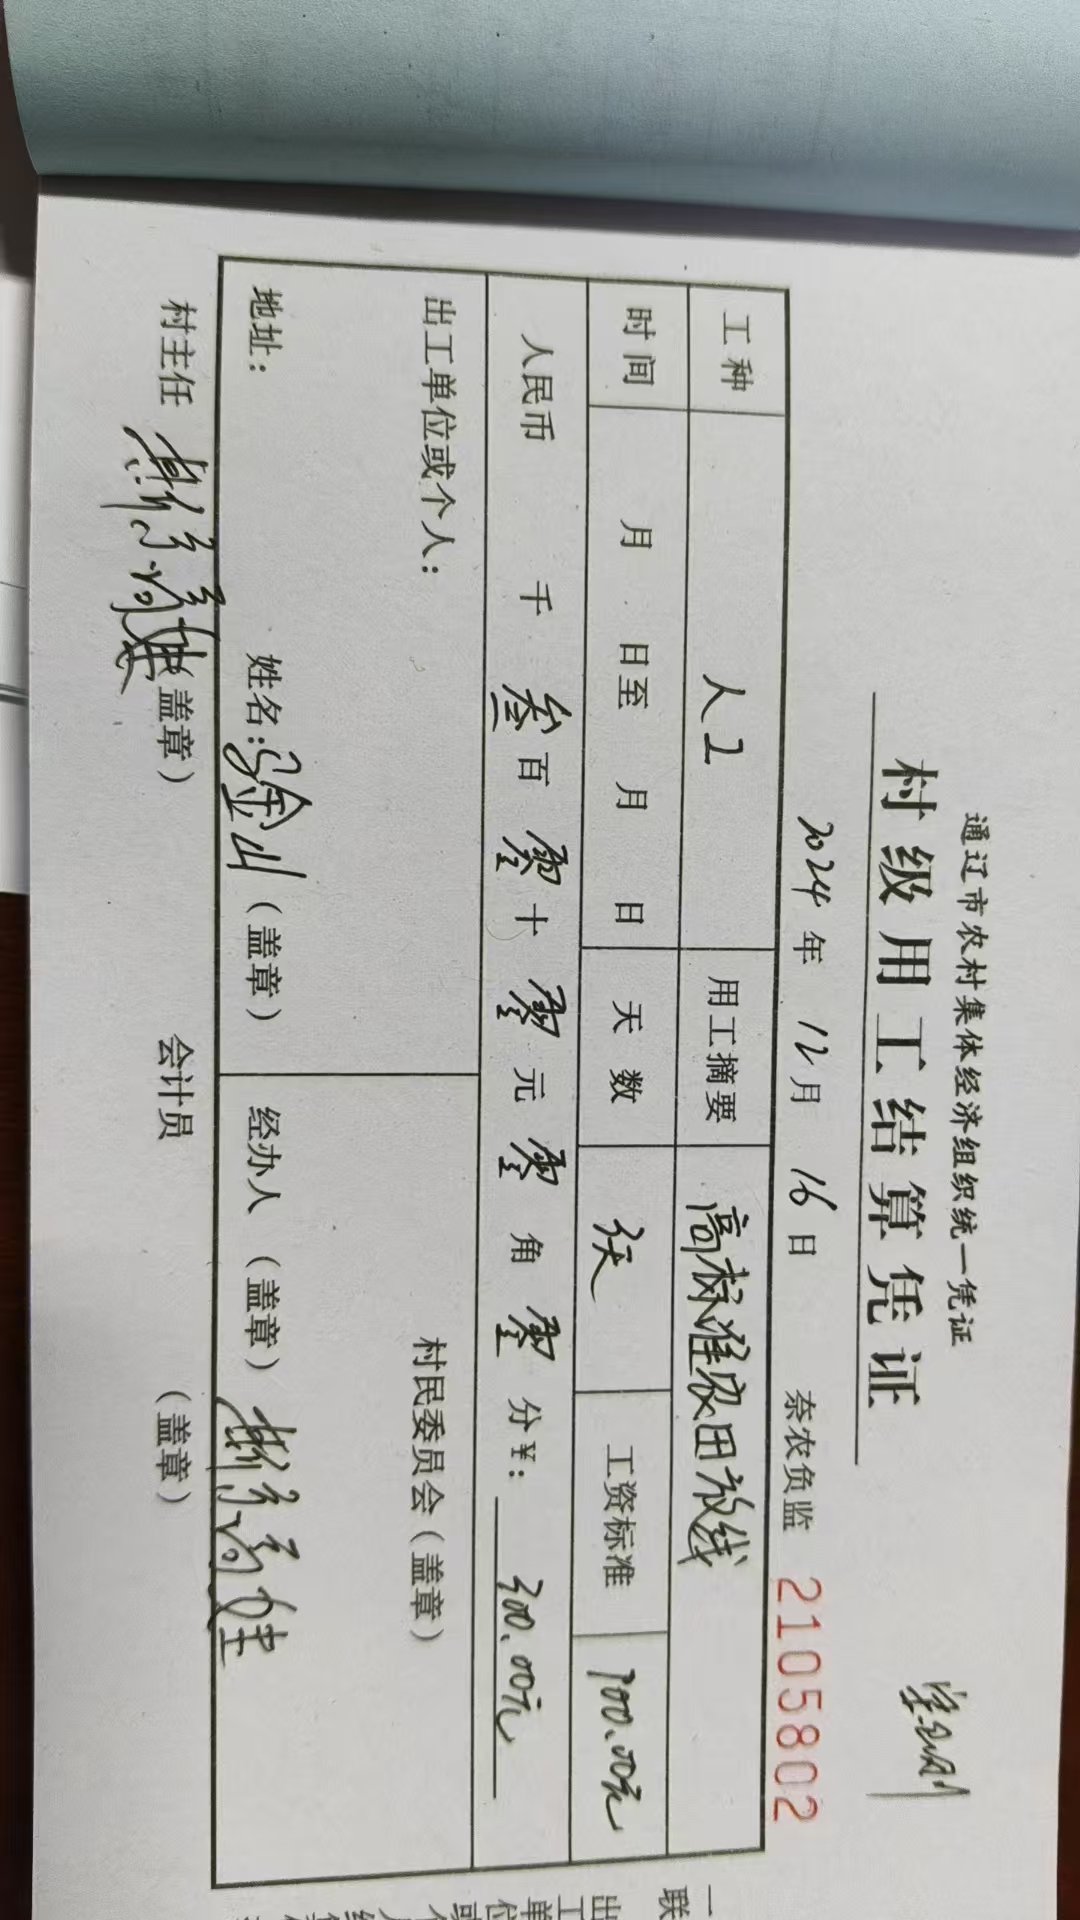 通辽市农村集体经济组织统一凭证
村级用工结算凭证
2024年 12月 16日 奈农负监 2105802
工种 人工 用工摘要 高标准农田放线
时间 月 日至 月 日 天数 3天 工资标准 100.00元
人民币 千 叁百 零十 零元 零角 零分¥: 300.00元
出工单位或个人: 村民委员会(盖章)
地址: 姓名: 金山(盖章) 经办人(盖章)
村主任 (盖章) 会计员 (盖章)
一联
出工单位或个人